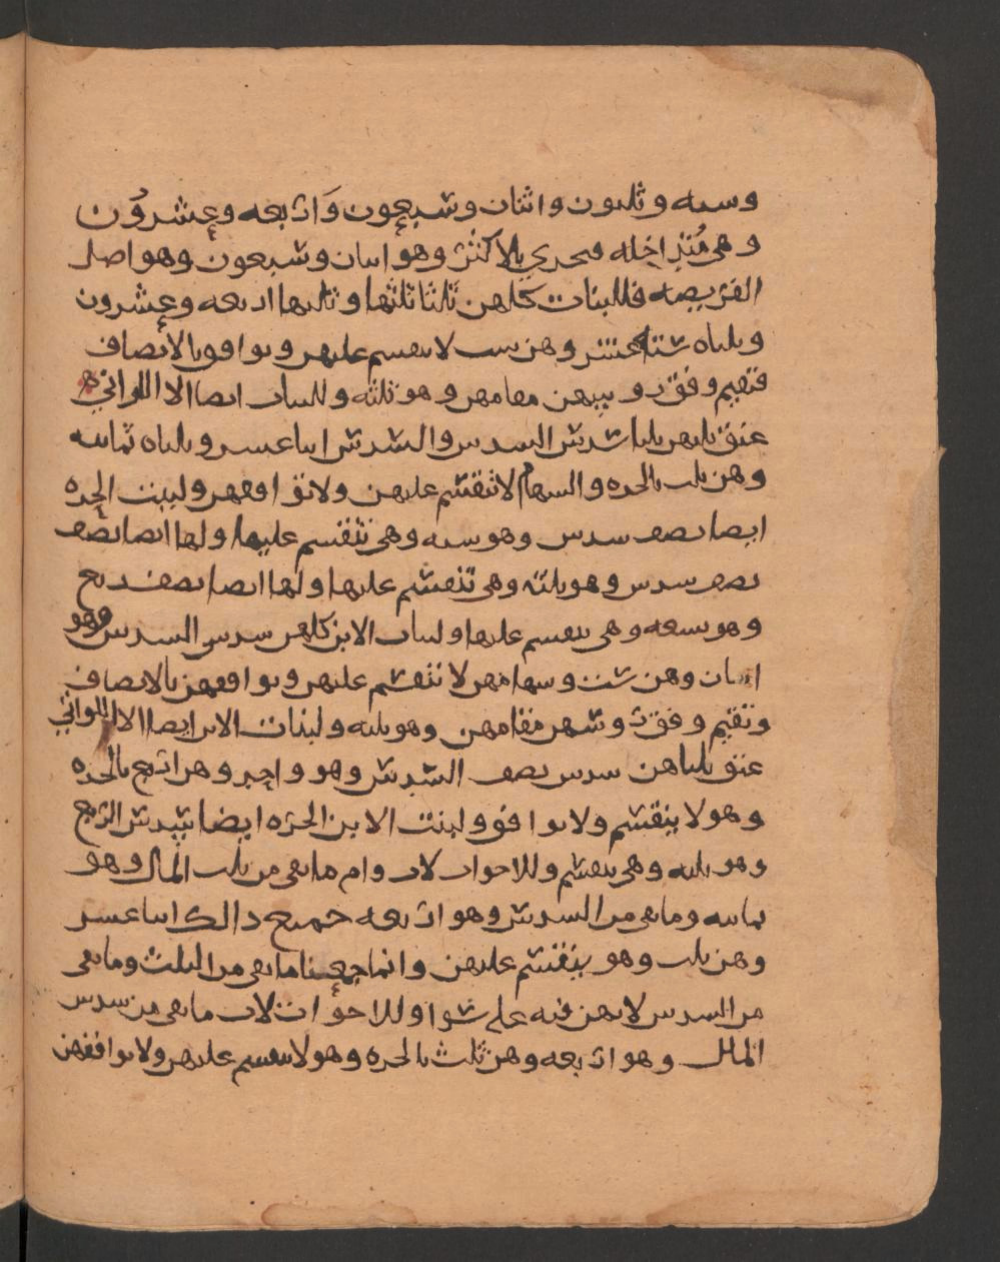 وسته وثلثون واثنان وسبعون واربعه وعشرون
وهي متداخله فيجزي بالاكثر وهو اثنان وسبعون وهو اصل
الفريضه فللبنات كلهن ثلثا ثلثها وثلثها اربعه وعشرون
وثلثاه سته عشر وهن ست لا ينقسم عليهن ويوافق بالانصاف
فتقيم وفق روسهن مقامهن وهو ثلثه وللبنات ايضا الا اللواتي
عتق ثلثهن ثلثا سدس السدس والسدس اثنا عشر وثلثاه ثمانيه
وهن ثلث بالحره والسهام لا تنقسم عليهن ولا توافقهن ولبنت الحره
ايضا نصف سدس وهو سته وهي تنقسم عليها ولها ايضا نصف
نصف سدس وهو ثلثه وهي تنقسم عليها ولها ايضا نصف ربع
وهو تسعه وهي تنقسم عليها ولبنات الابن كلهن سدس السدس وهو
اثنان وهن ست وسهامهن لا تنقسم عليهن ويوافقهن بالانصاف
وتقيم وفق روسهن مقامهن وهو ثلثه ولبنات الابن ايضا الا اللواتي
عتق ثلثاهن سدس نصف السدس وهو واحد وهن اربع بالحره
وهو لا ينقسم ولا يوافق ولبنت الابن الحره ايضا سدس الربع
وهو ثلثه وهي تنقسم وللاخوات لاب وام ما بقي من ثلث المال وهو
ثمانيه وما بقي من السدس وهو اربعه جميع دالك اثنا عشر
وهن ثلث وهو ينقسم عليهن وانما جمعنا ما بقي من الثلث وما بقي
من السدس لانهن فيه على سوا وللاخوات لاب ما بقي من سدس
المال وهو اربعه وهن ثلث بالحره وهو لا ينقسم عليهن ولا يوافقهن